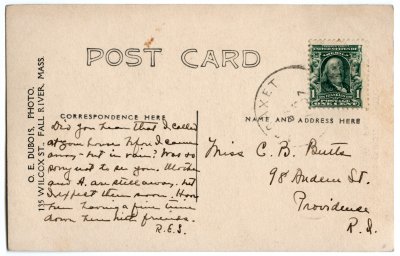 POST CARD
O. E. DUBOIS, PHOTO.
135 WILCOX ST. FALL RIVER, MASS.
CORRESPONDENCE HERE
NAME AND ADDRESS HERE
Did you hear that I called
at your house before I came
away - but in vain? Was so
sorry not to see you. Mother
and A. are still away, but
I expect them soon. Have
been having a fine time
down here with friends.
R.E.S.
Miss C. B. Butts
98 St.
Providence
R. I.